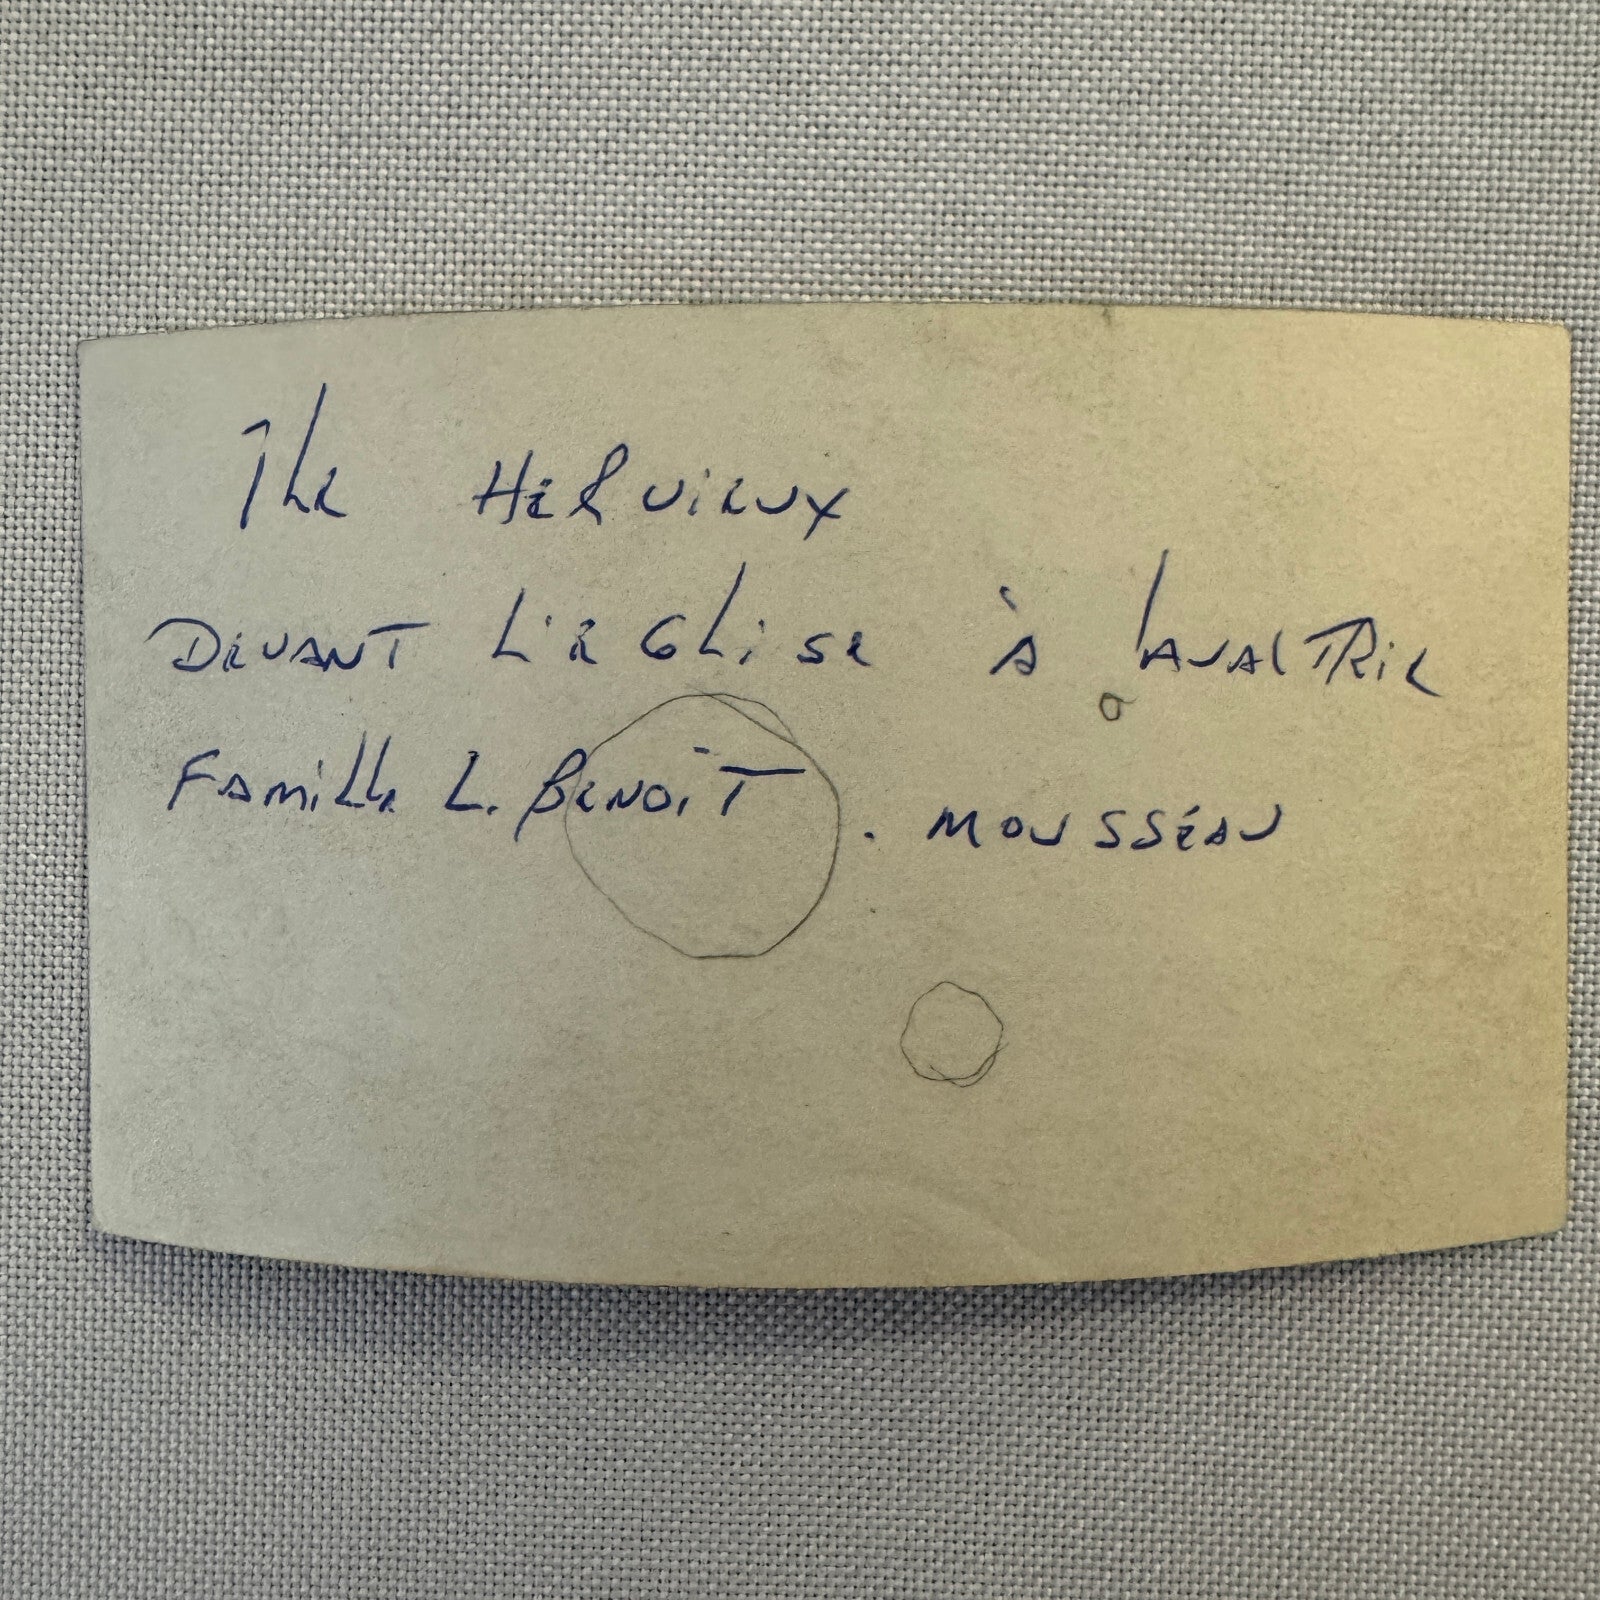 Ile HERVIEUX
DEVANT L'EGLISE à LAVALTRIE
FAMILLE L. BENOîT. MOUSSÉAU